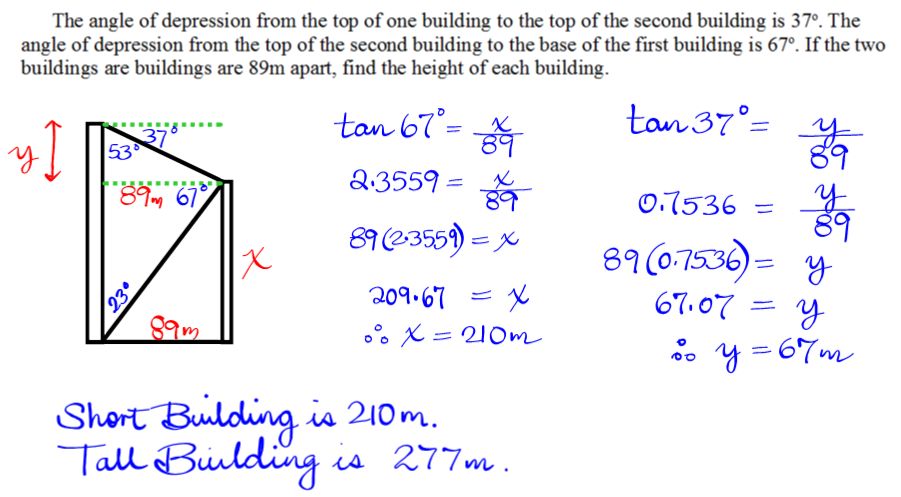 The angle of depression from the top of one building to the top of the second building is 37º. The
angle of depression from the top of the second building to the base of the first building is 67º. If the two
buildings are buildings are 89m apart, find the height of each building.
y
37°
53°
89m 67°
x
23°
89m
tan 67° = x/89
2.3559 = x/89
89(2.3559) = x
209.67 = x
∴ x = 210m
tan 37° = y/89
0.7536 = y/89
89(0.7536) = y
67.07 = y
∴ y = 67m
Short Building is 210m.
Tall Building is 277m.